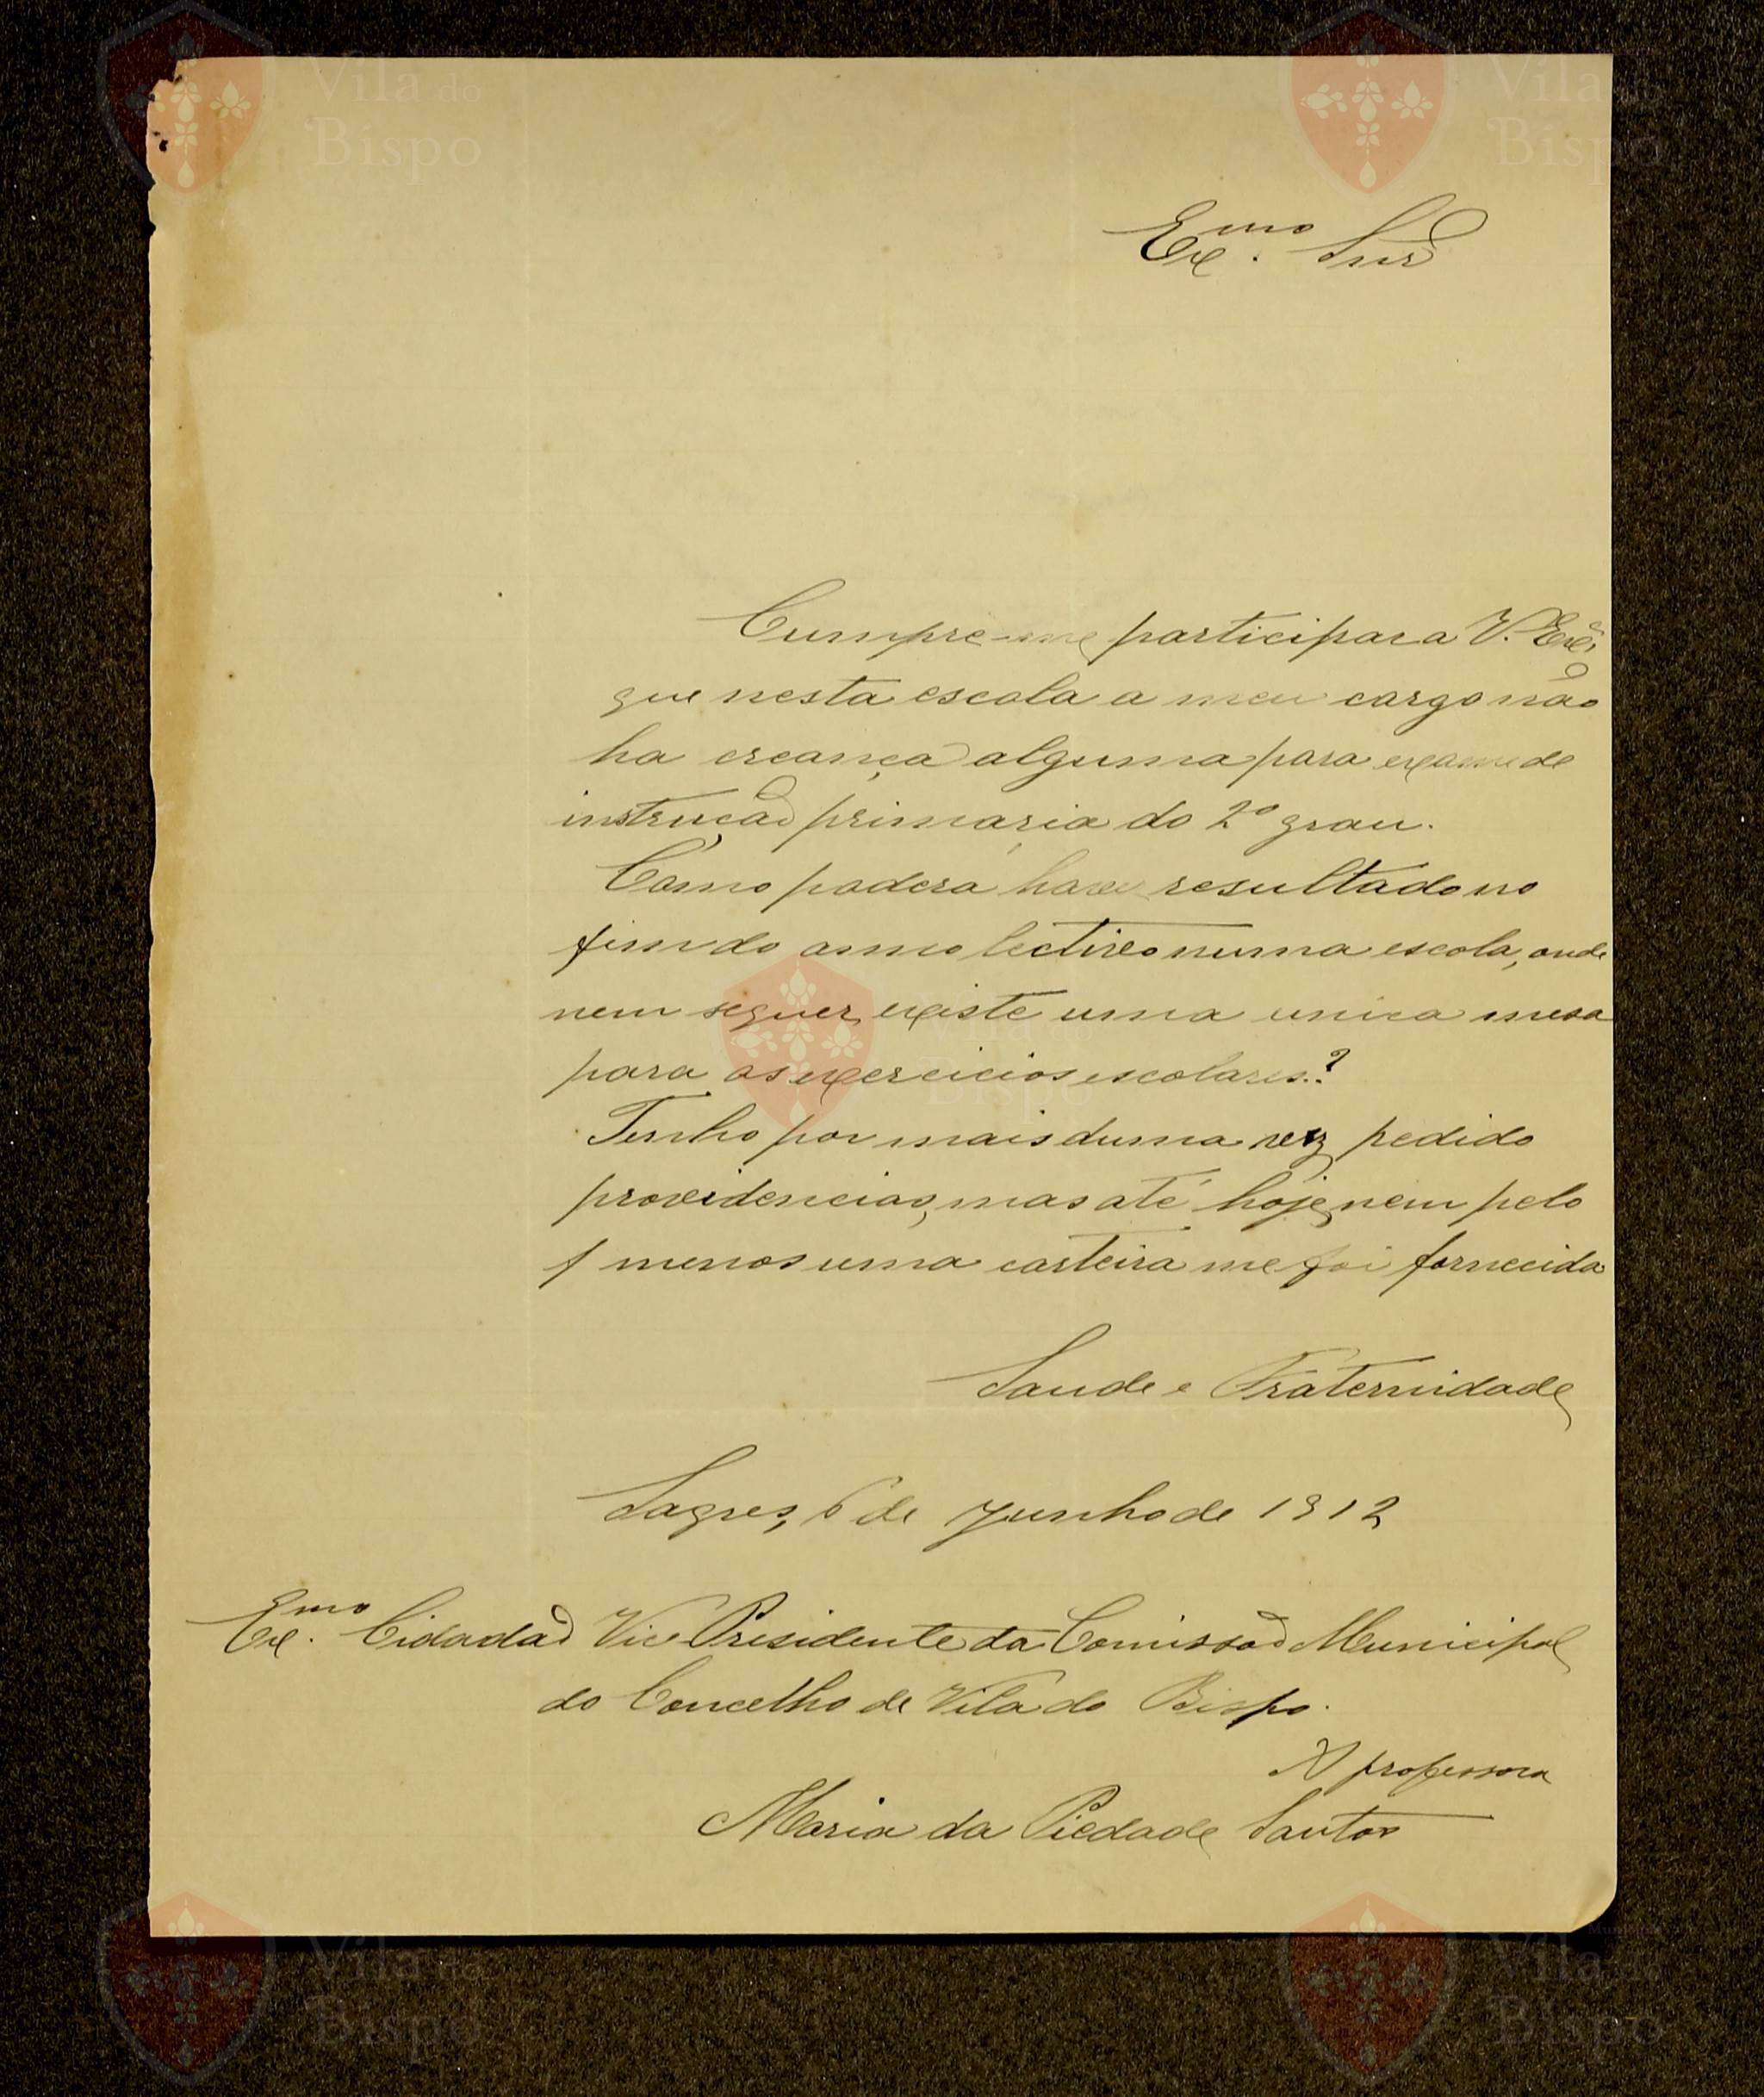 Vila do
Bispo
Vila do
Bispo
Exmo. Snr
Cumpre-me participar a V. Exª,
que nesta escola a meu cargo não
ha creança alguma para exame de
instrução primaria do 2º grau.
Como poderá haver resultado no
fim do anno lectivo numa escola, onde
nem sequer, existe uma unica mesa
para os exercicios escolares?
Tenho por mais duma vez pedido
providencias, mas até hoje, nem pelo
menos uma carteira me foi fornecida
Saude e Fraternidade
Sagres, 6 de Junho de 1912
Exmo. Cidadão Vice Presidente da Comissão Municipal
do Concelho de Vila do Bispo.
A professora
Maria da Piedade Santos
Vila do
Bispo
Vila do
Bispo
Vila do
Bispo